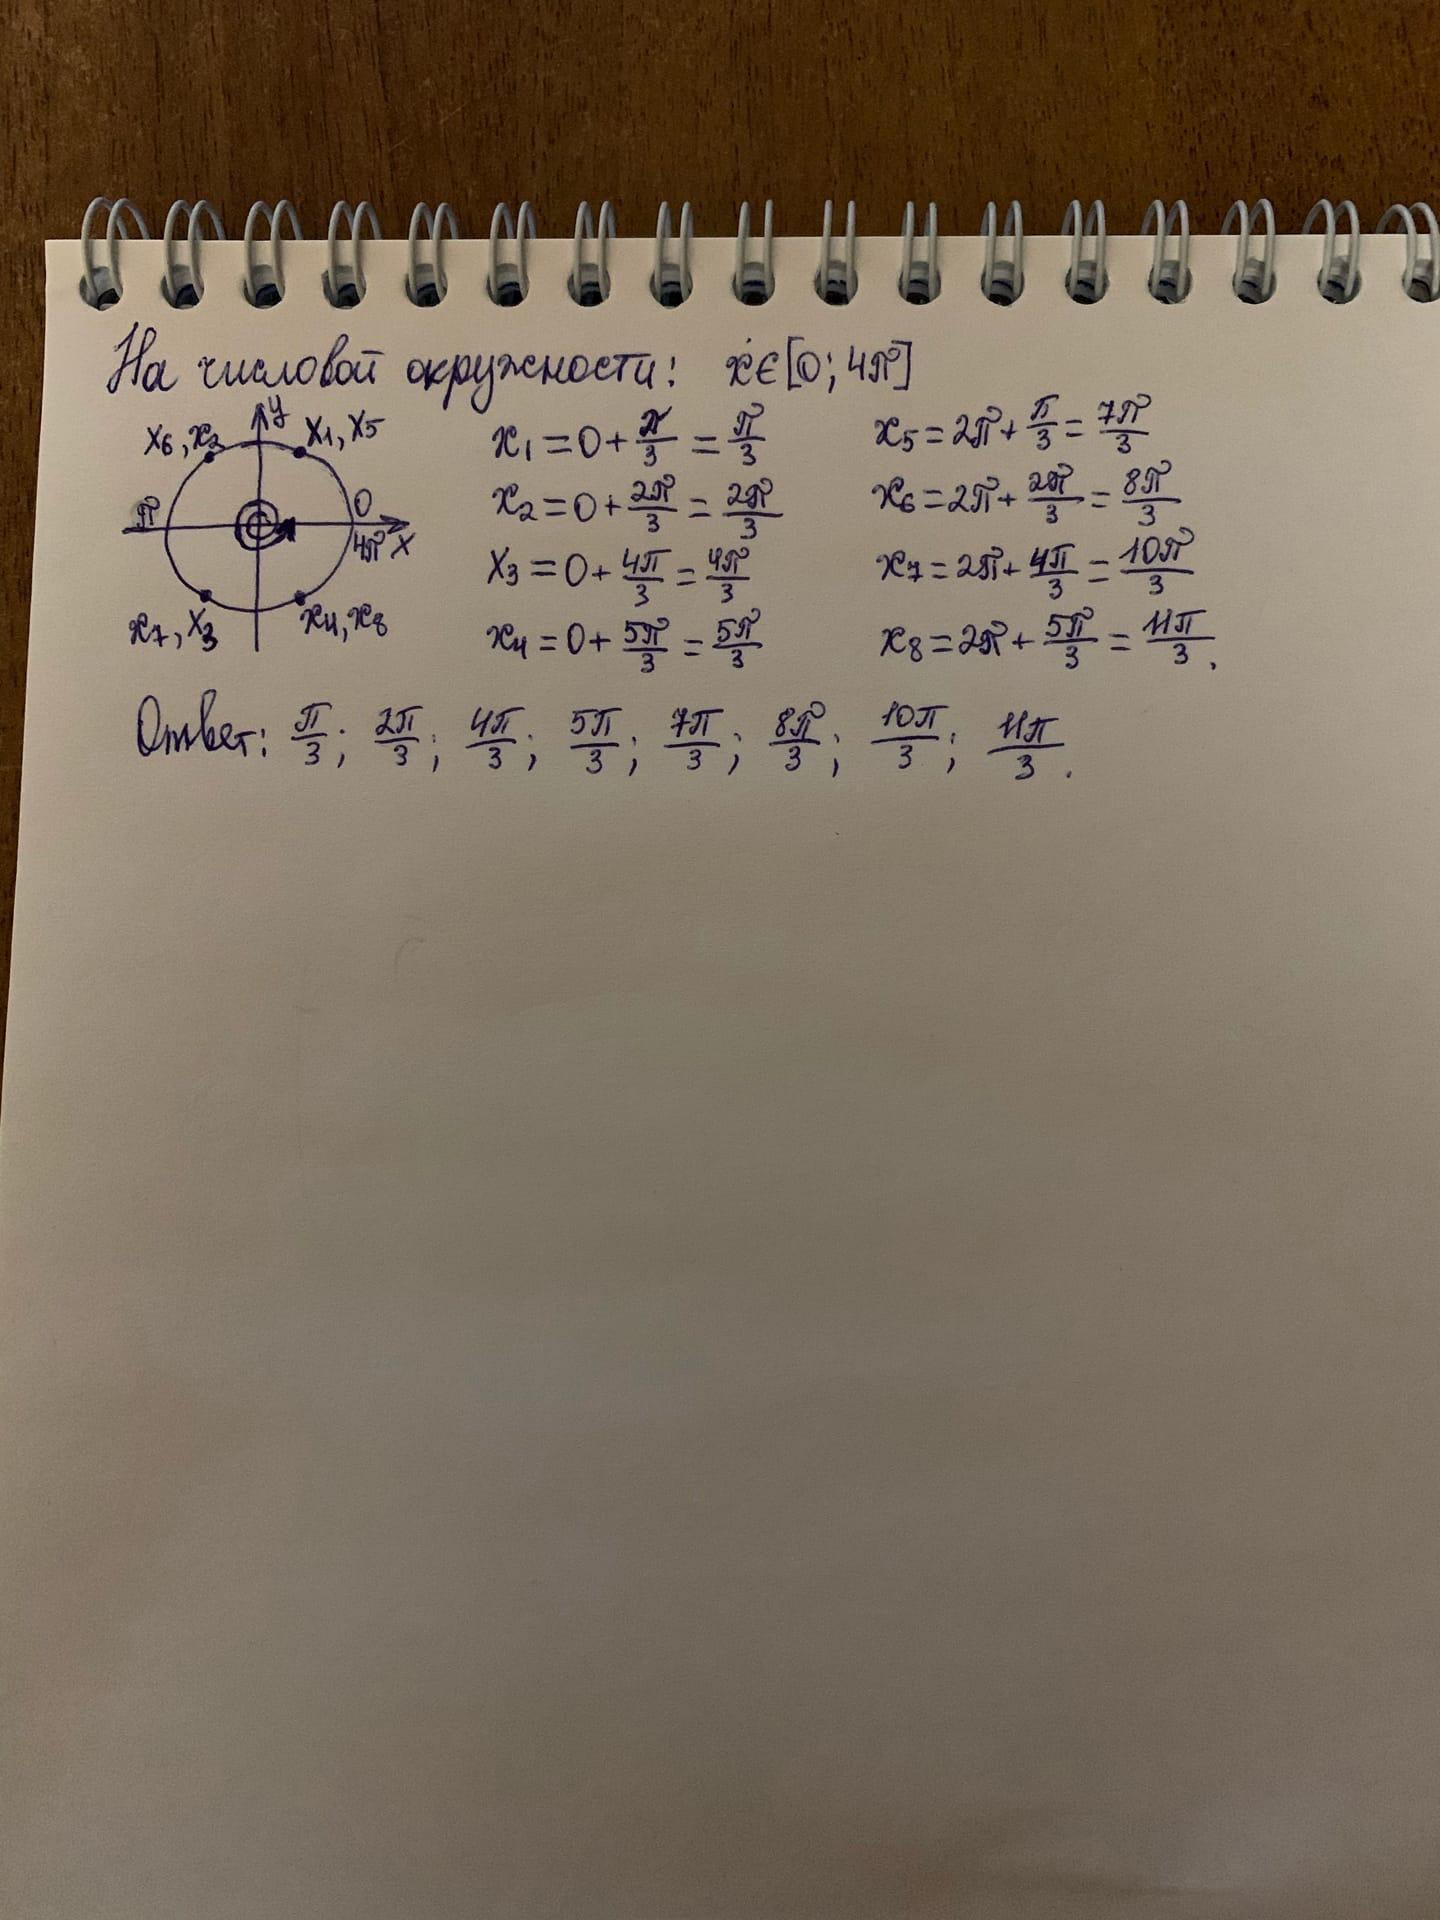 На числовой окружности: x∈[0; 4π]
y
x₆, x₂ x₁, x₅
π 0
4π x
x₇, x₃ x₄, x₈
x₁ = 0 + π/3 = π/3
x₂ = 0 + 2π/3 = 2π/3
x₃ = 0 + 4π/3 = 4π/3
x₄ = 0 + 5π/3 = 5π/3
x₅ = 2π + π/3 = 7π/3
x₆ = 2π + 2π/3 = 8π/3
x₇ = 2π + 4π/3 = 10π/3
x₈ = 2π + 5π/3 = 11π/3.
Ответ: π/3; 2π/3; 4π/3; 5π/3; 7π/3; 8π/3; 10π/3; 11π/3.